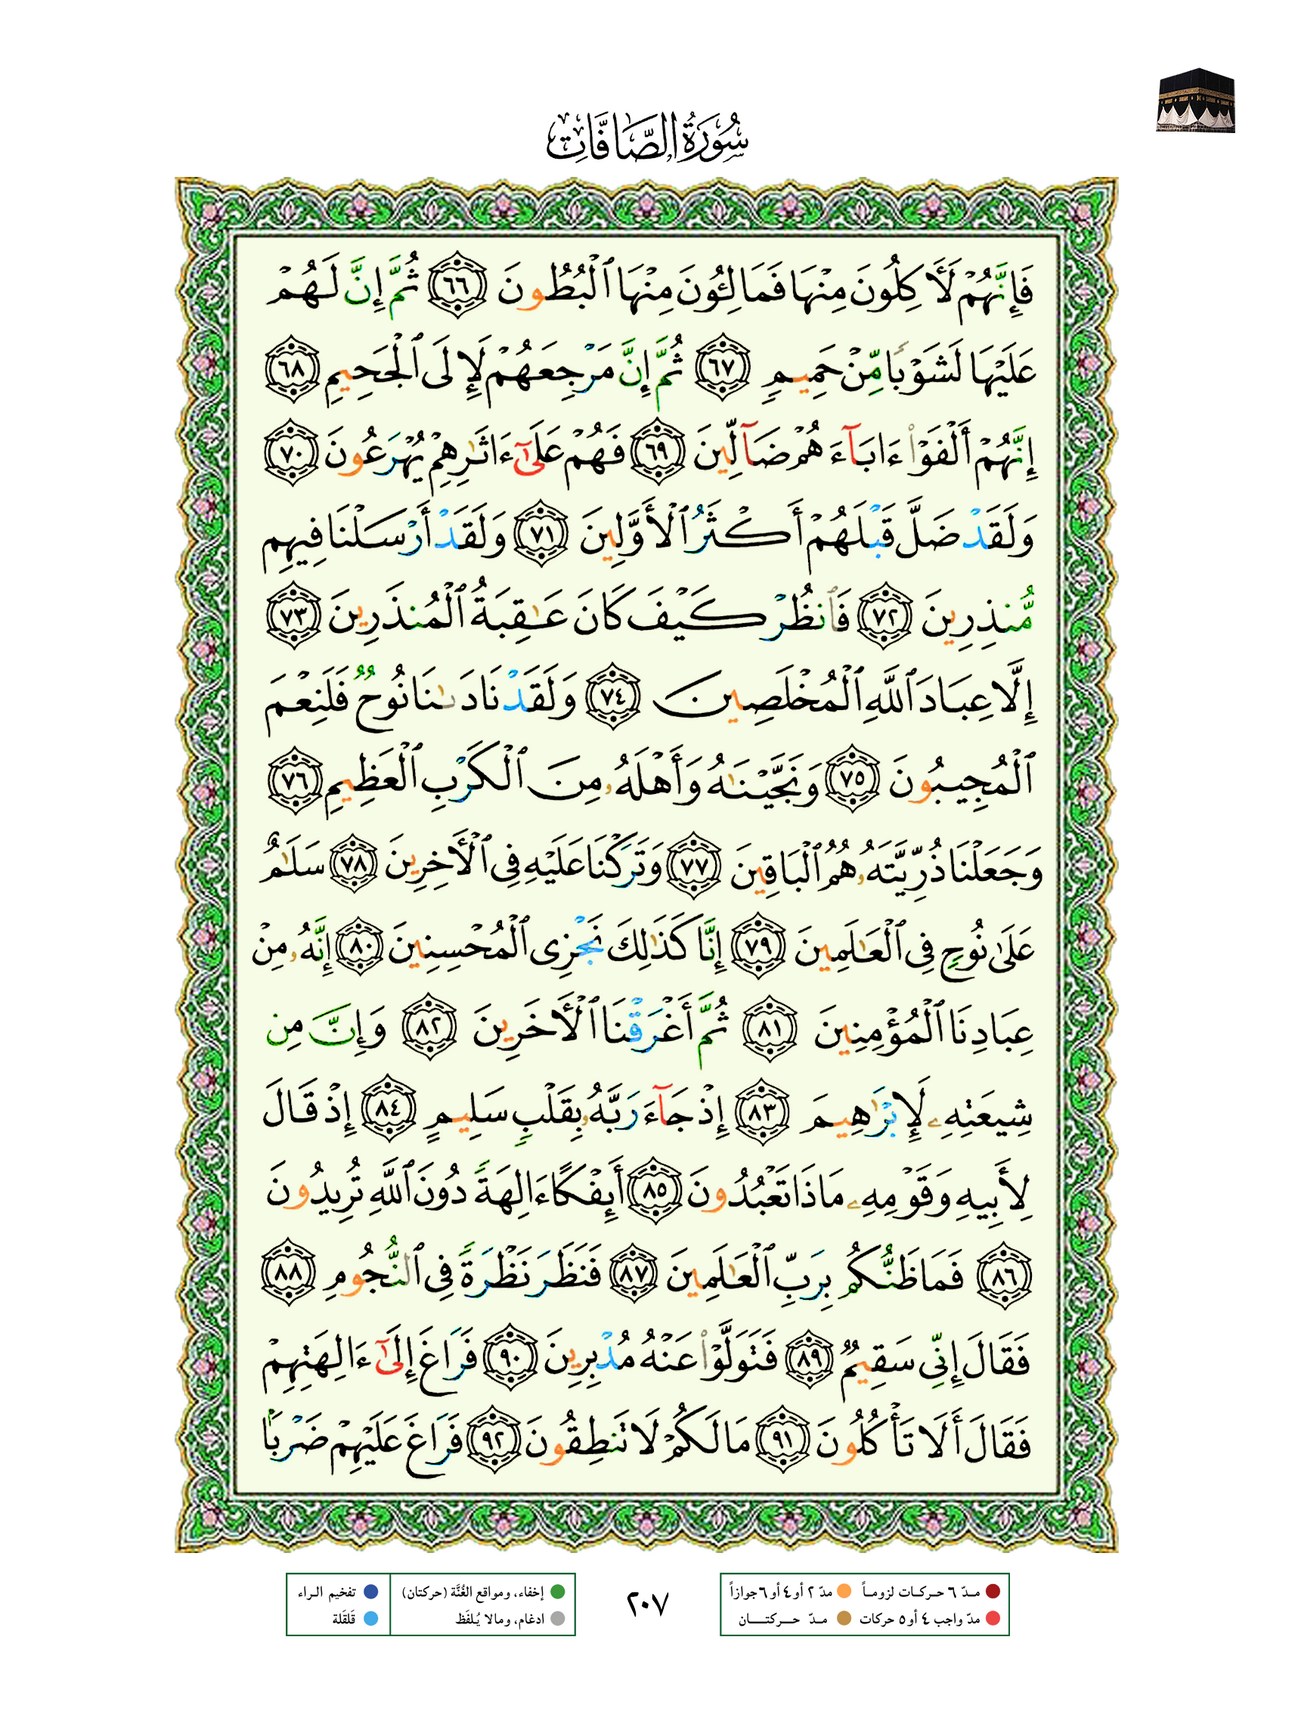 سُورَةُ الصَّافَّاتِ
فَإِنَّهُمْ لَـَٔاكِلُونَ مِنْهَا فَمَالِـُٔونَ مِنْهَا ٱلْبُطُونَ ٦٦ ثُمَّ إِنَّ لَهُمْ
عَلَيْهَا لَشَوْبًا مِّنْ حَمِيمٍ ٦٧ ثُمَّ إِنَّ مَرْجِعَهُمْ لَإِلَى ٱلْجَحِيمِ ٦٨
إِنَّهُمْ أَلْفَوْا۟ ءَابَآءَهُمْ ضَآلِّينَ ٦٩ فَهُمْ عَلَىٰٓ ءَاثَـٰرِهِمْ يُهْرَعُونَ ٧٠
وَلَقَدْ ضَلَّ قَبْلَهُمْ أَكْثَرُ ٱلْأَوَّلِينَ ٧١ وَلَقَدْ أَرْسَلْنَا فِيهِم
مُّنذِرِينَ ٧٢ فَٱنظُرْ كَيْفَ كَانَ عَـٰقِبَةُ ٱلْمُنذَرِينَ ٧٣
إِلَّا عِبَادَ ٱللَّهِ ٱلْمُخْلَصِينَ ٧٤ وَلَقَدْ نَادَىٰنَا نُوحٌ فَلَنِعْمَ
ٱلْمُجِيبُونَ ٧٥ وَنَجَّيْنَـٰهُ وَأَهْلَهُۥ مِنَ ٱلْكَرْبِ ٱلْعَظِيمِ ٧٦
وَجَعَلْنَا ذُرِّيَّتَهُۥ هُمُ ٱلْبَاقِينَ ٧٧ وَتَرَكْنَا عَلَيْهِ فِى ٱلْـَٔاخِرِينَ ٧٨ سَلَـٰمٌ
عَلَىٰ نُوحٍ فِى ٱلْعَـٰلَمِينَ ٧٩ إِنَّا كَذَٰلِكَ نَجْزِى ٱلْمُحْسِنِينَ ٨٠ إِنَّهُۥ مِنْ
عِبَادِنَا ٱلْمُؤْمِنِينَ ٨١ ثُمَّ أَغْرَقْنَا ٱلْـَٔاخَرِينَ ٨٢ وَإِنَّ مِن
شِيعَتِهِۦ لَإِبْرَٰهِيمَ ٨٣ إِذْ جَآءَ رَبَّهُۥ بِقَلْبٍ سَلِيمٍ ٨٤ إِذْ قَالَ
لِأَبِيهِ وَقَوْمِهِۦ مَاذَا تَعْبُدُونَ ٨٥ أَئِفْكًا ءَالِهَةً دُونَ ٱللَّهِ تُرِيدُونَ
٨٦ فَمَا ظَنُّكُم بِرَبِّ ٱلْعَـٰلَمِينَ ٨٧ فَنَظَرَ نَظْرَةً فِى ٱلنُّجُومِ ٨٨
فَقَالَ إِنِّى سَقِيمٌ ٨٩ فَتَوَلَّوْا۟ عَنْهُ مُدْبِرِينَ ٩٠ فَرَاغَ إِلَىٰٓ ءَالِهَتِهِمْ
فَقَالَ أَلَا تَأْكُلُونَ ٩١ مَا لَكُمْ لَا تَنطِقُونَ ٩٢ فَرَاغَ عَلَيْهِمْ ضَرْبًۢا
مدّ ٦ حركات لزوماً مدّ ٢ أو ٤ أو ٦ جوازاً
مدّ واجب ٤ أو ٥ حركات مدّ حركتان
٢٠٧
إخفاء، ومواقع الغُنَّة (حركتان) تفخيم الراء
ادغام، ومالا يُلفَظ قلقلة